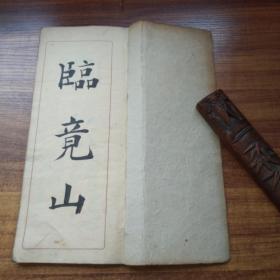 臨竟山